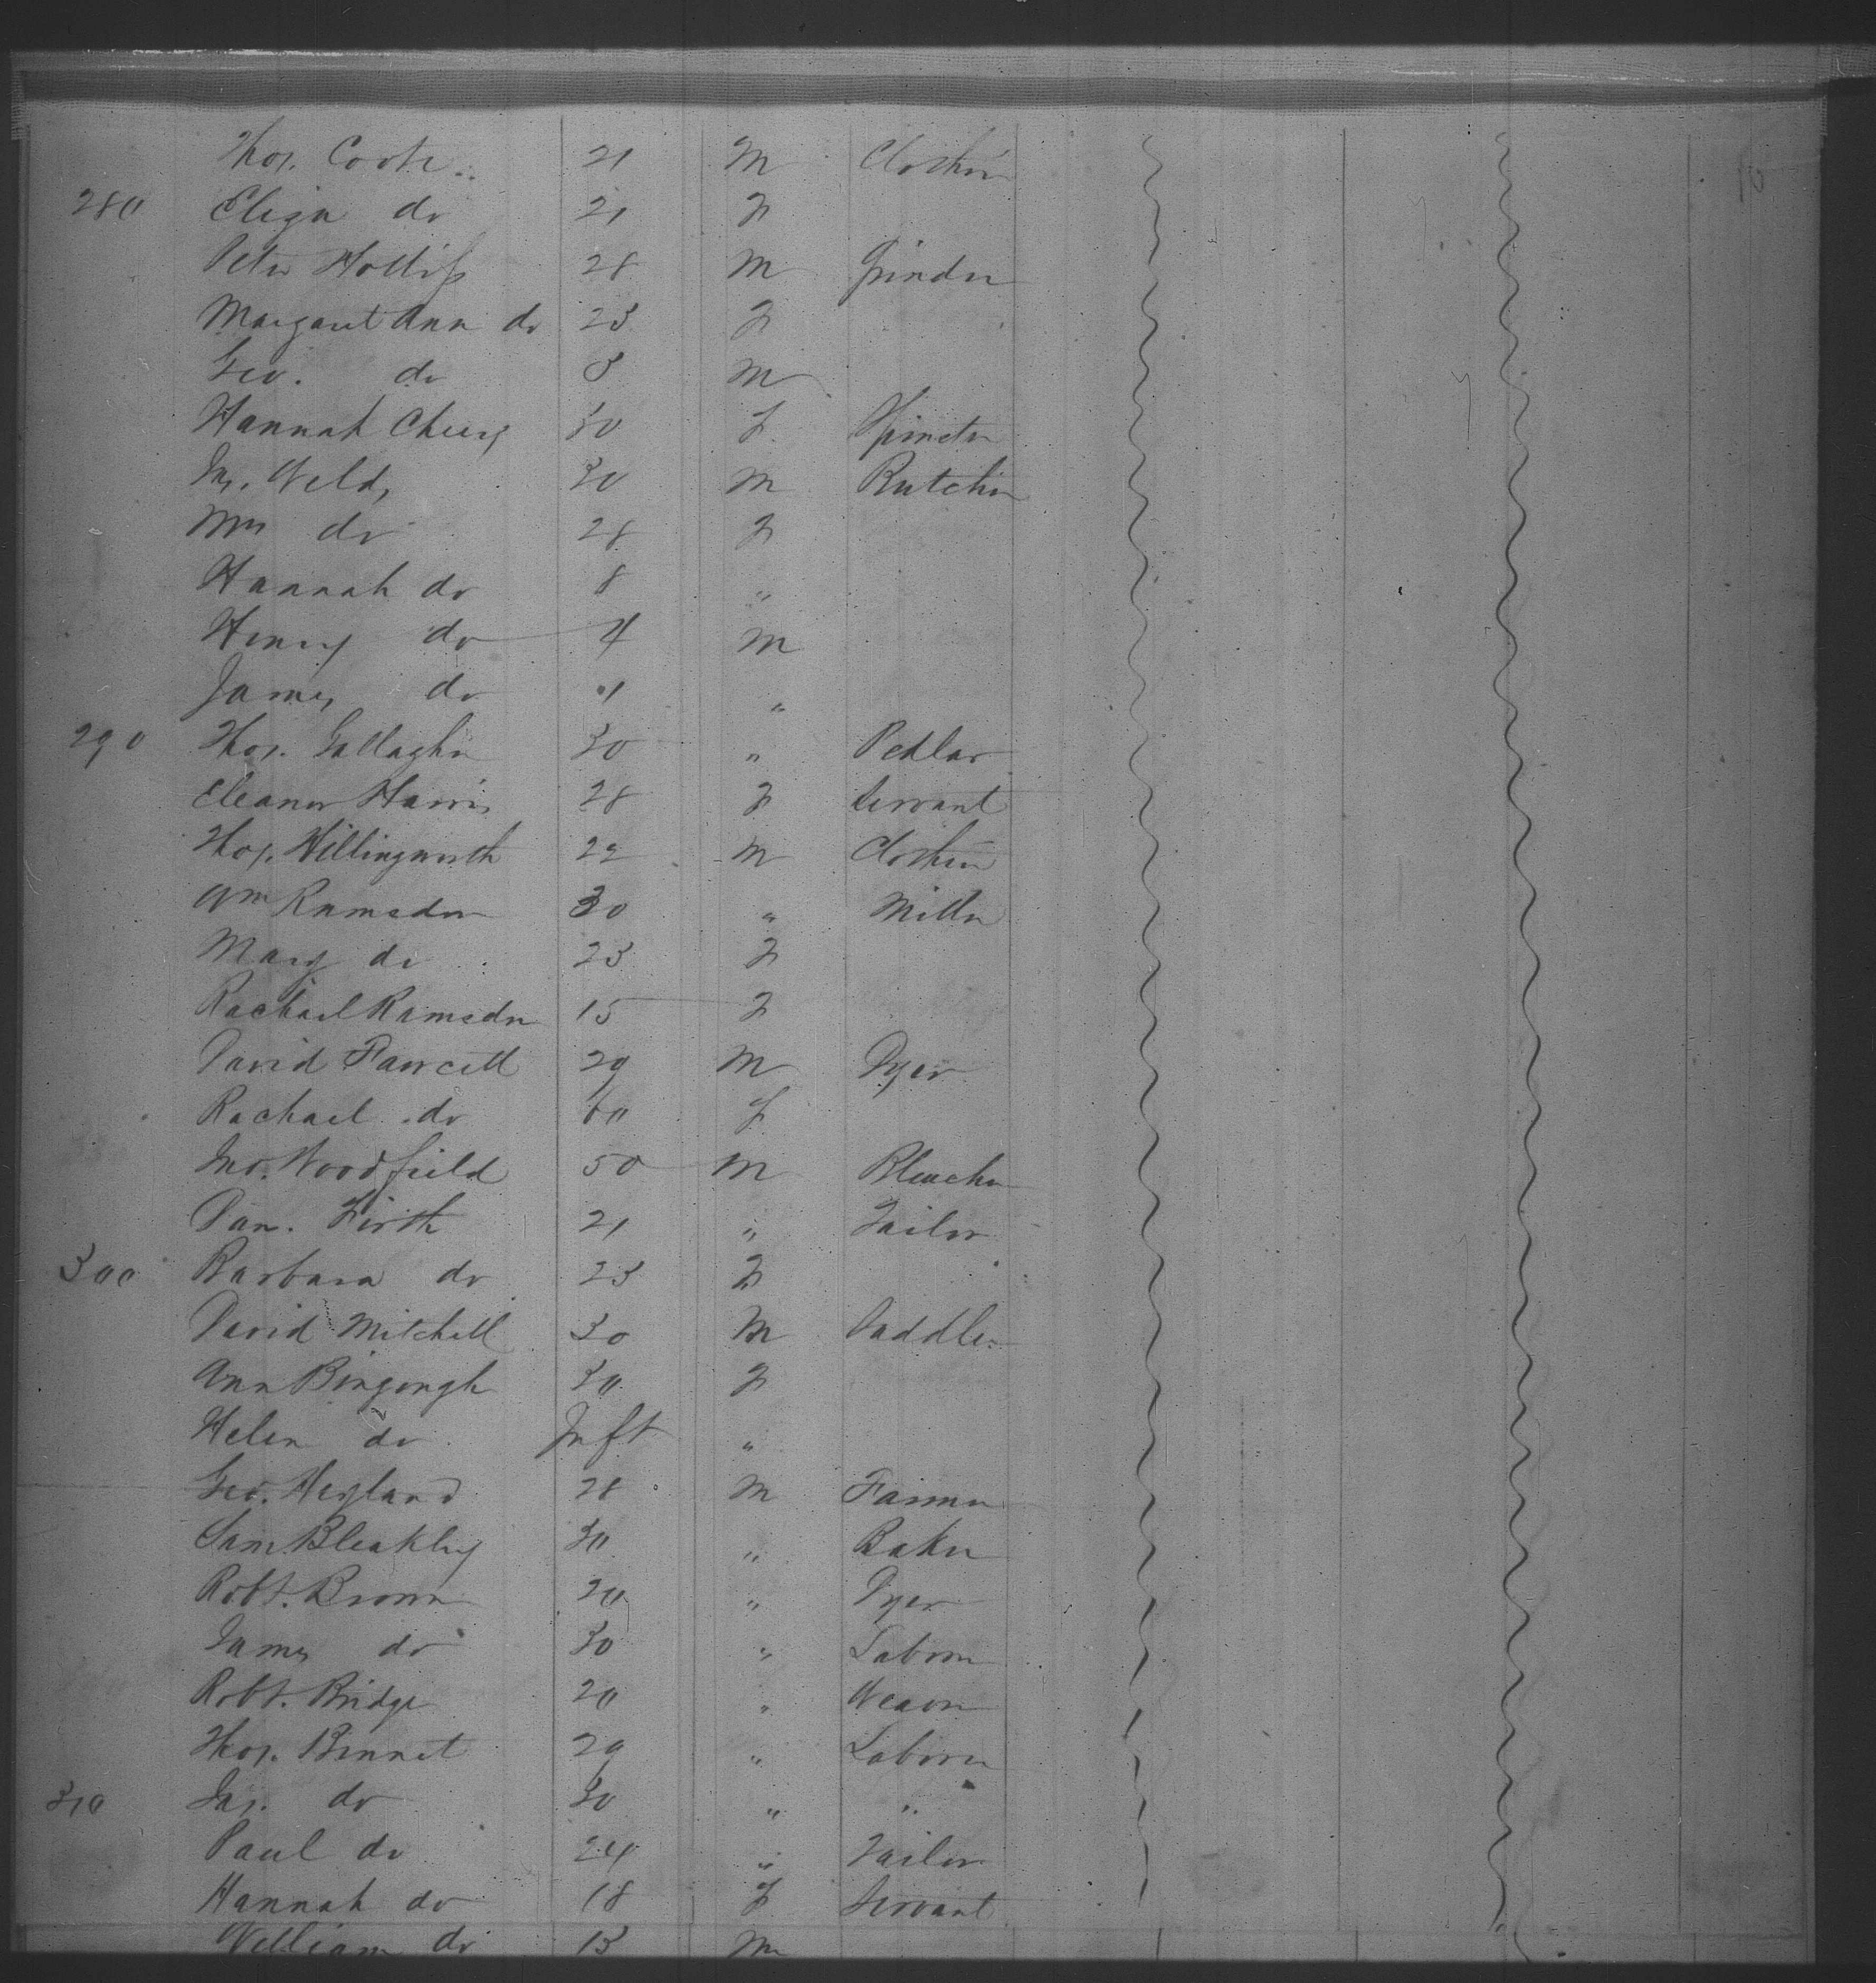 Thos. Coote 21 M Clothier
280 Eliza do 21 F
Peter Hollis 28 M Grinder
Margaret Ann do 23 F
Geo. do 3 M
Hannah Cheesy 30 F Spinster
Jas. Welds 30 M Butcher
Mrs do 28 F
Hannah do 8 "
Henry do 4 M
James do 1 "
290 Thos. Gallagher 30 " Pedlar
Eleanor Harris 28 F Servant
Thos. Hillingworth 22 M Clothier
Wm Ramsden 30 " Miller
Mary do 23 F
Rachael Ramsden 15 F
David Fawcett 29 M Dyer
Rachael do 60 F
Jno. Woodfield 50 M Bleacher
Dan. Firth 21 " Tailor
300 Barbara do 23 F
David Mitchell 30 M Saddler
Ann 30 F
Helen do Inft "
Geo. Heyland 28 M Farmer
Sam. Bleakley 30 " Baker
Robt. Brown 20 " Dyer
James do 30 " Laborer
Robt. Bridge 20 " Weaver
Thos. Binnet 29 " Laborer
310 Jas. do 30 " "
Paul do 24 " Tailor
Hannah do 18 F Servant
William do 13 M